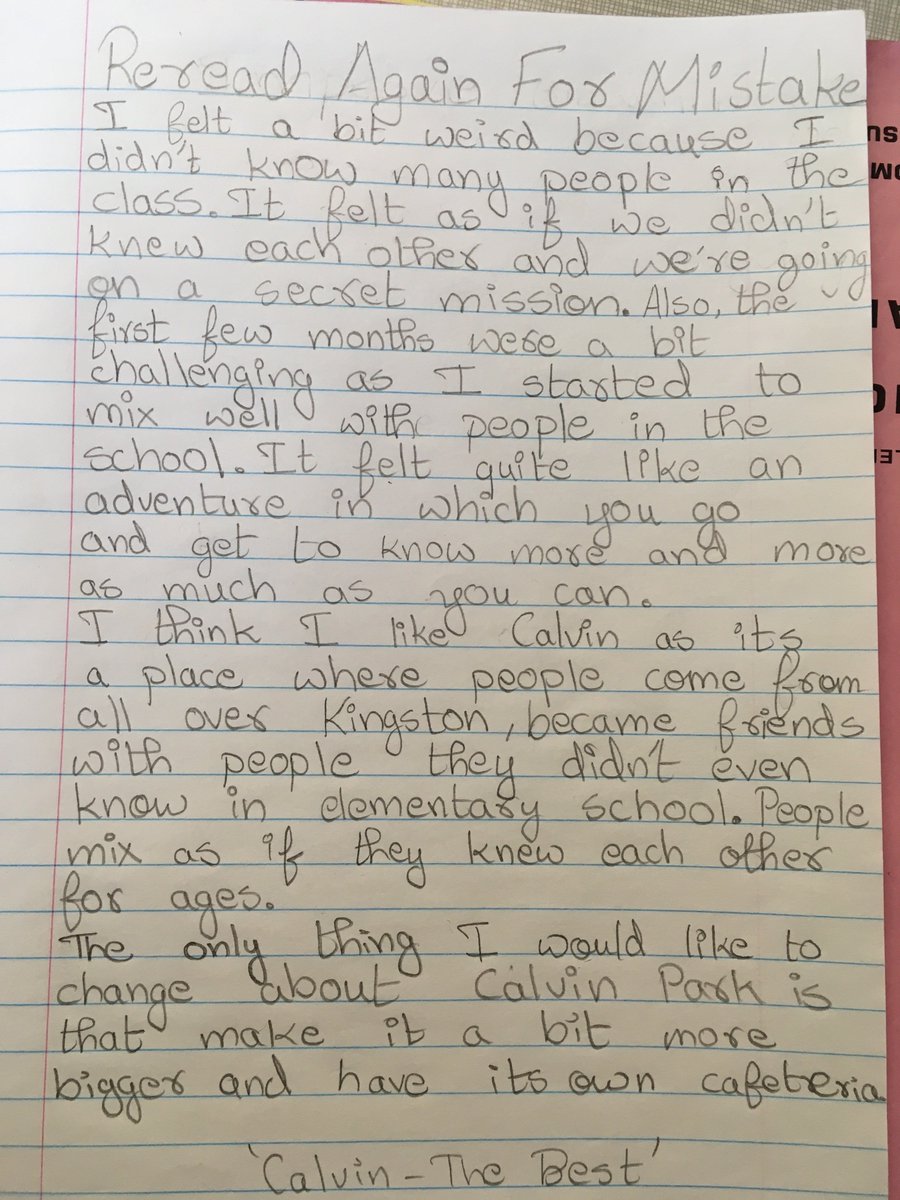 Reread Again For Mistake
I felt a bit weird because I
didn't know many people in the
class. It felt as if we didn't
knew each other and we're going
on a secret mission. Also, the
first few months were a bit
challenging as I started to
mix well with people in the
school. It felt quite like an
adventure in which you go
and get to know more and more
as much as you can.
I think I like Calvin as its
a place where people come from
all over Kingston, became friends
with people they didn't even
know in elementary school. People
mix as if they knew each other
for ages.
The only thing I would like to
change about Calvin Park is
that make it a bit more
bigger and have its own cafeteria.
'Calvin - The Best'